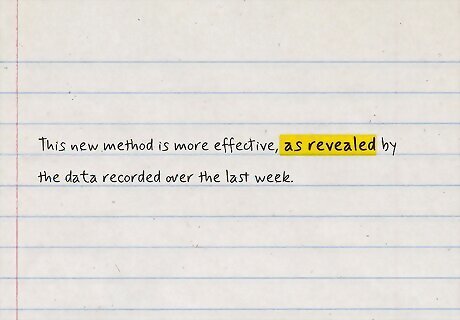 This new method is more effective, as revealed by
the data recorded over the last week.